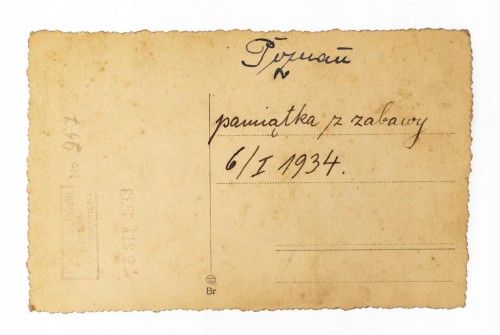 Poznań
pamiątka z zabawy
6/I 1934.
No 947
Br